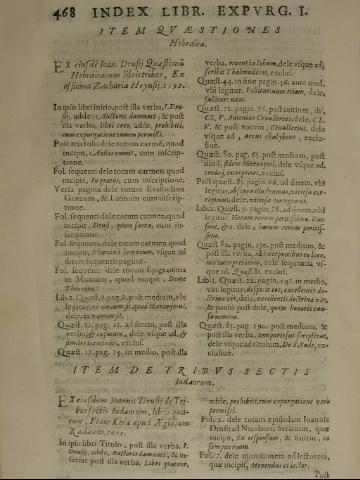 468 INDEX LIBR. EXPVRG. I.
ITEM QVÆSTIONES
Hebraica.
EX eiusdē Ioan. Drusij Quæstionū
Hebraicarum libris tribus, Ex
officina Zachariæ Heynsij. 1592.
In ipso libri initio, post illa verba, I. Dru-
sij, adde, Auctoris damnati, & post
illa verba, libri tres, adde, prohibiti,
cum expurgatione tamen permissi.
Post tria folia dele totum carmē, quod
incipit, cum inscrip-
tione.
Fol. sequenti dele totum carmen quod
incipit, In gratis, cum inscriptione.
Versa pagina dele totum Exastichon
Græcum, & Latinum cum inscrip-
tione.
Fol. sequenti dele totum carmen, quod
incipit, Drusi, cum in-
scriptione.
Fol. sequenti, dele totum carmē quod
incipit, vsque ad
finem sequentis paginæ.
Fol. sequenti dele totum Epigramma
in Momum, quod incipit, Dente
Theonino.
Lib. 1. Quæst. 9. pag. 8. post medium, vbi
legitur,
dele,
Quæst. 12. pag. 12. ad finem, post illa
verba, dele vsque ad, &
similes licentiæ, exclus.
Quæst. 17. pag. 15. in medio, post illa
verba, recens in lobum, dele vsque ad,
scribit Thalmudicus, exclus.
Quæst. 44. in fine pagin. 36. ante med.
vbi legitur. Fallitur: num etiam, dele,
fallitur: nam.
Quæst. 71. pagin. 56. post initium, ibi,
CL. V. Antonius Ceuallerius, dele, CL.
V. & post vocem, Ceuallerius, dele
vsque ad, arcus chalybeus, exclu-
suè.
Quæst. 80. pag. 63. post medium, post
illud, sidere Hieronymi, dele vsque ad,
credo, interpretes, exclus.
Post quæst. 83. pagin. 66. ad finem, vbi
legitur,
dele, vitiosa corrigimus.
Lib. 2. Quæst. 9. pagin. 78. ad finem, vbi
legitur, Horum rerum peritissimus. Dru-
sius, &c. dele, horum rerum peritis-
simus.
Quæst. 80. pagin. 130. post medium, &
post illa verba, ab interpretibus to loco,
dele sequentia vs-
que ad, Quæst. 81. exclus.
Lib. 3. Quæst. 22. pagin. 145. in medio,
vbi legitur, despicit eos, excellentis do-
ctrinæ vir, dele, excellentis doctrinæ vir,
& quæ ibi post dele, quem honoris cau-
sa nomino.
Quæst. 57. pag. 190. post medium, &
post illa verba, temporibus scripserat,
dele vsque ad titulum, De S. Fide, ex-
clusuè.
ITEM DE TRIBVS SECTIS
Iudæorum.
EX eiusdem Ioannis Drusij de Tri-
bus sectis Iudæorum, libris qua-
tuor, Franekeræ apud Ægidium
Radæum. 1605.
In ipso libri Titulo, post illa verba, I.
Drusij, adde, Auctoris damnati, & in-
ferius post illa verba, Libri quatuor,
adde, prohibiti, cum expurgatione verò
permissi.
Fol. 2. dele totum epistolam Ioannis
Drusij ad Nicolaum Serarium, quæ
incipit, En responsum, & finitur, in
sem
Fol. 7. dele monitionem ad lectorem,
quæ incipit, Monendus es lector.
Post